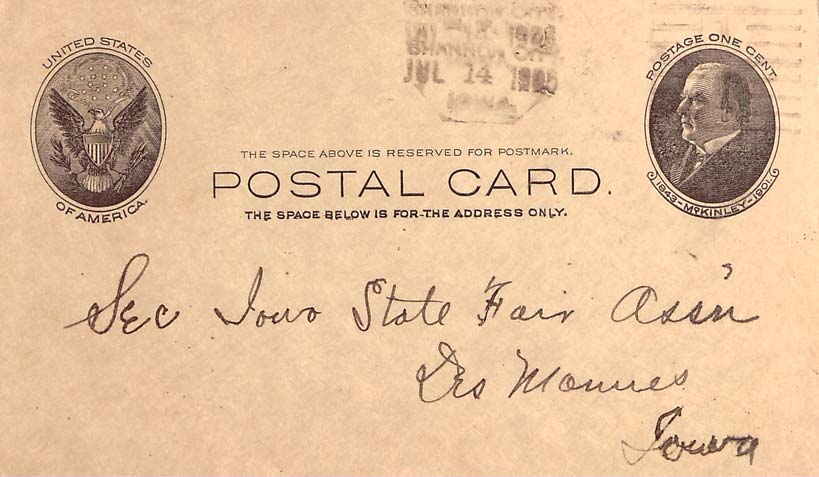 SHANNON CITY,
1905
SHANNON CITY,
JUL 14 1905
IOWA.
UNITED STATES
OF AMERICA.
POSTAGE ONE CENT.
1843-McKINLEY-1901
THE SPACE ABOVE IS RESERVED FOR POSTMARK.
POSTAL CARD.
THE SPACE BELOW IS FOR THE ADDRESS ONLY.
Sec Iowa State Fair Ass'n
Des Moines
Iowa